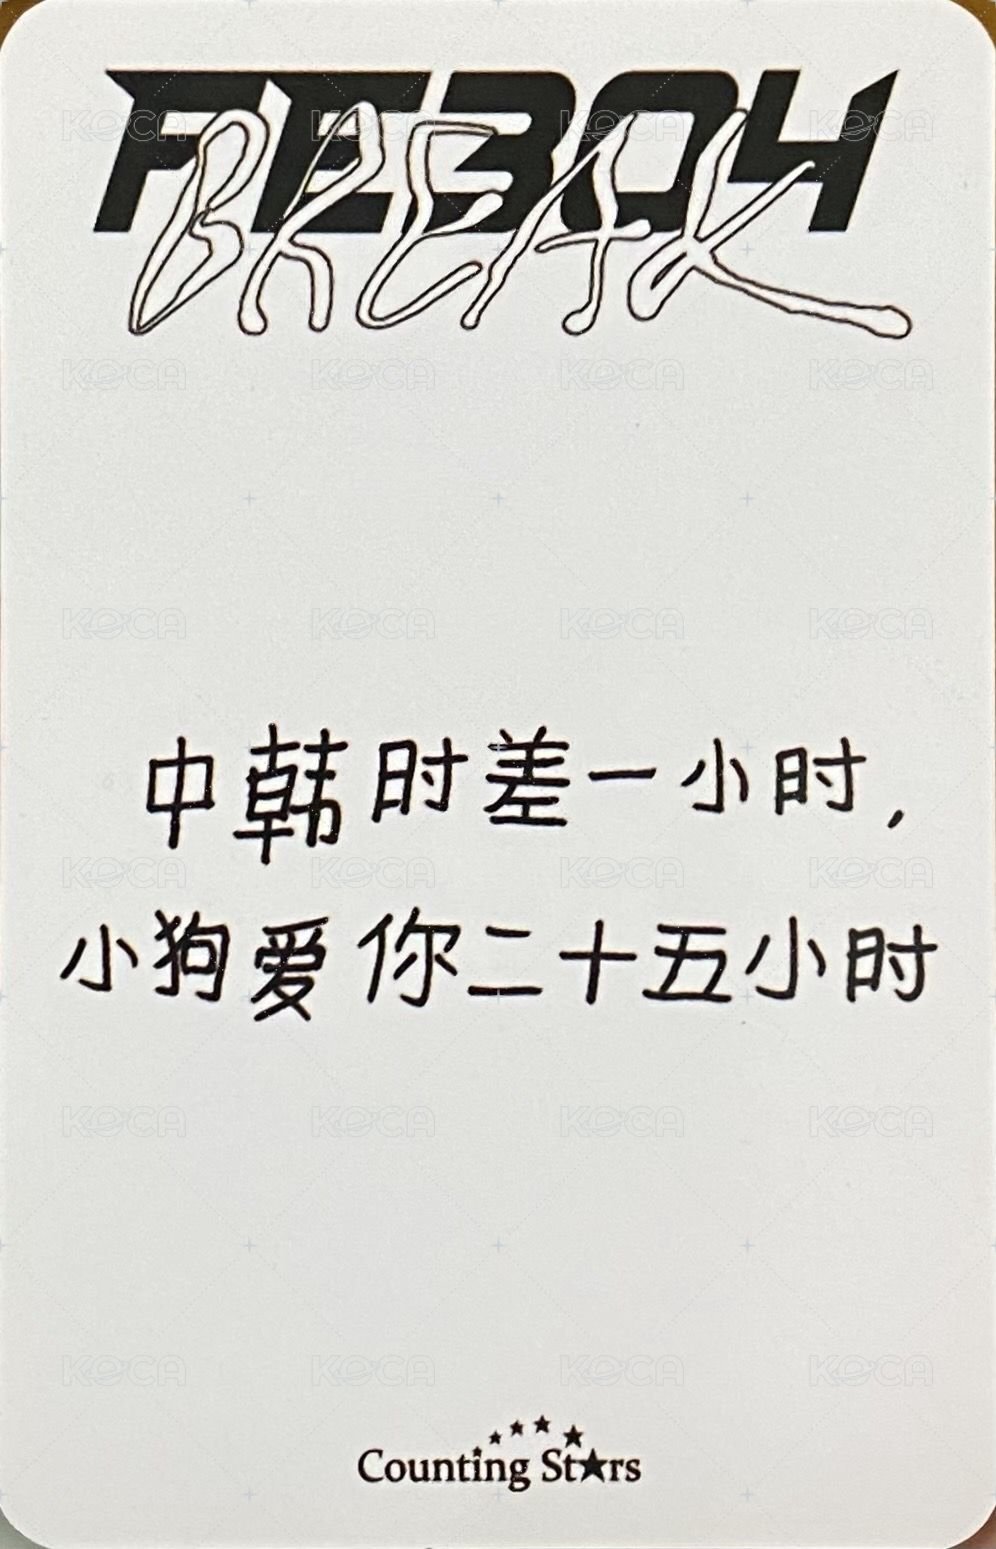 REBOY
BREAK
中韩时差一小时,
小狗爱你二十五小时
Counting Stars
KOCA